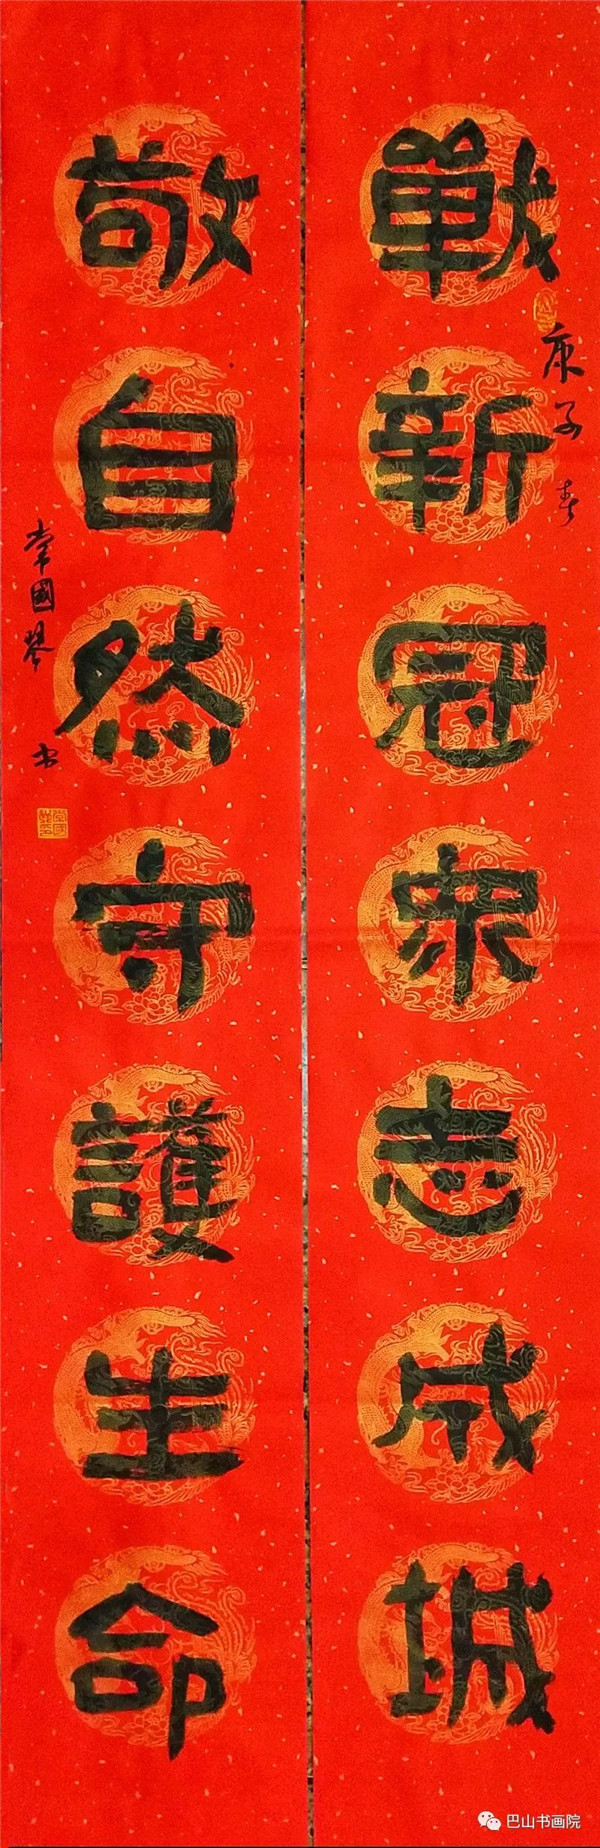 戰新冠眾志成城
庚子春
敬自然守護生命
常國琴书
巴山书画院